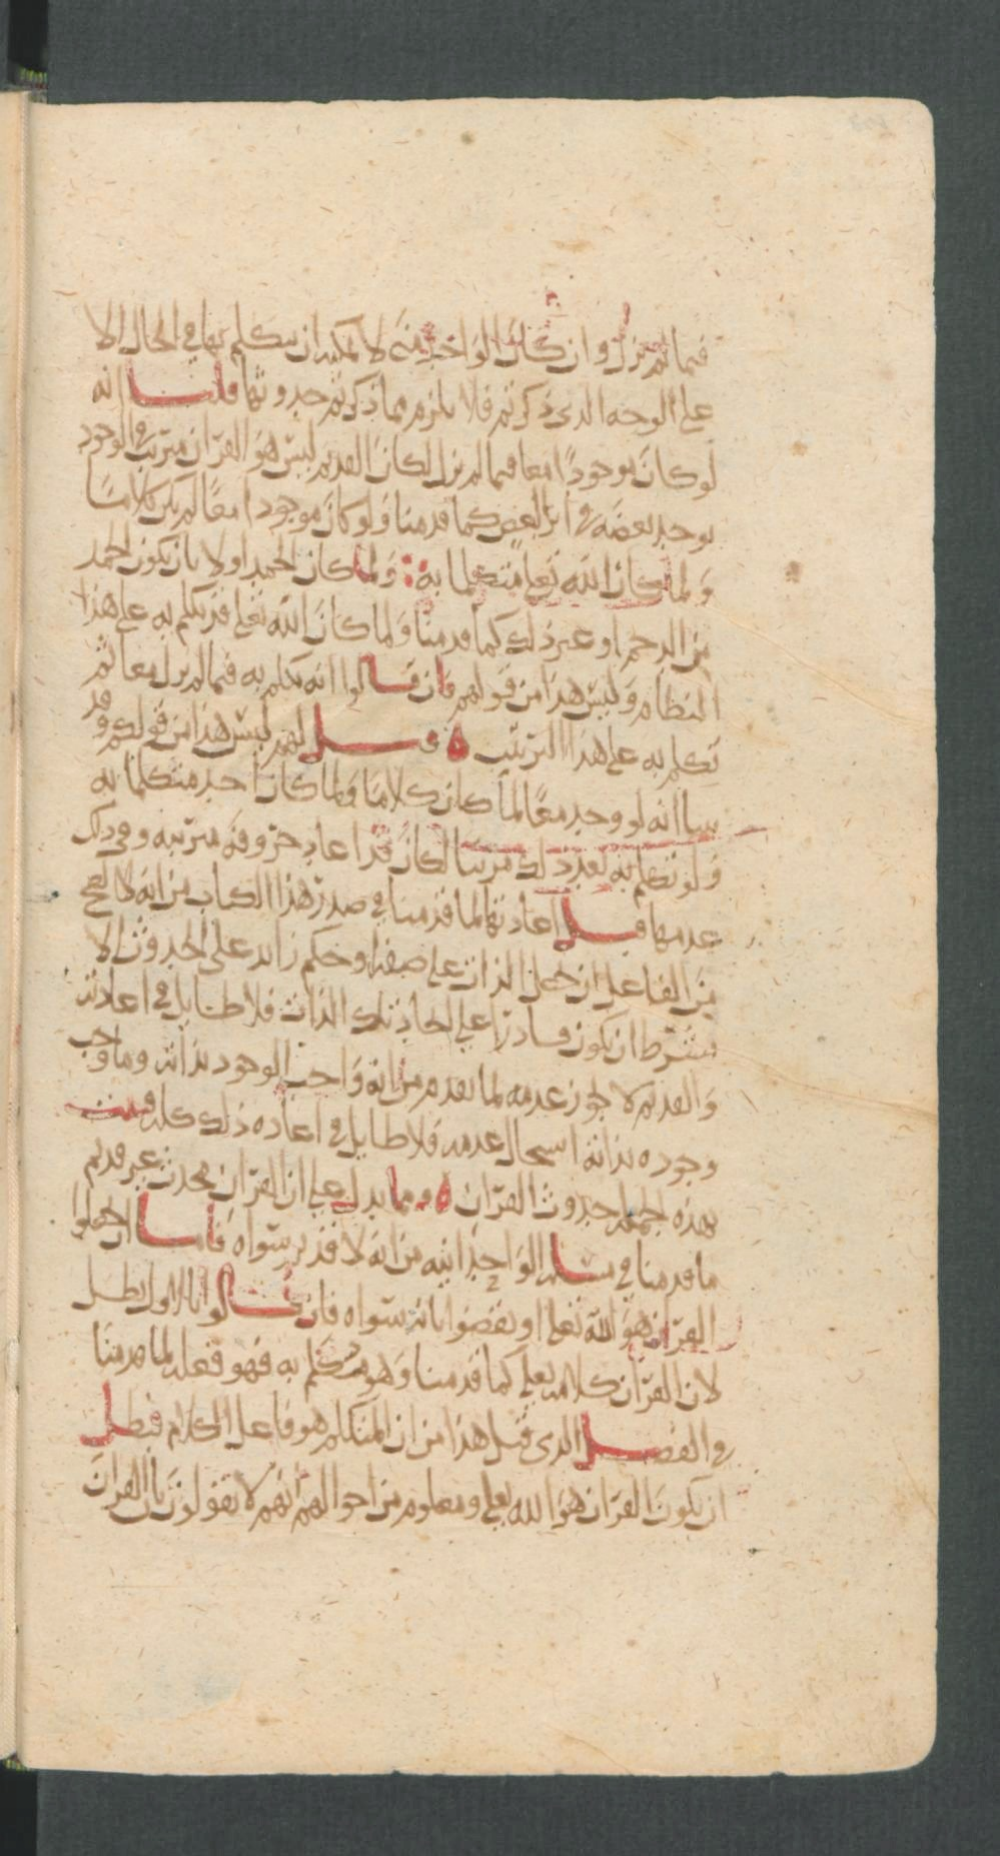 فيما لم يزل وان كان الواحد منا لا يمكنه ان يتكلم بها في الحال الا
على الوجه الذي ذكرتم فلا يلزم مما ذكرتم حدوثها قلنا انه
لو كان موجودا معا فيما لم يزل لكان القديم ليس هو القران مترتب في الوجود
يوجد بعضه في اثر البعض كما قدمنا ولو كان موجودا معا لم يكن كلاما
ولما كان الله تعلى متكلما به ولما كان الحمد اولا بان يكون الحمد
من الدحم او غير ذلك كما قدمنا ولما كان الله تعلى قد تكلم به على هذا
النظام وليس هذا من قولهم فان قالوا انه تكلم به فيما لم يزل معا ثم
تكلم به على هذا الترتيب ه قيل لهم ليس هذا من قولكم وقد
بينا انه لو وجد معا لما كان كلاما ولما كان احد متكلما به
ولو تكلم به بعد ذلك مرتبا لكان قد اعاد حروفه مترتبه وفي ذلك
عدمها قبل اعادتها لما قدمنا في صدر هذا الكتاب من انه لا يصح
من الفاعل ان يجعل الذات على صفه او حكم زائد على الحدوث الا
بشرط ان يكون قادرا على ايجاد تلك الذات فلا طايل في اعادته
والقديم لا يجوز عدمه لما تقدم من انه واجب الوجود بذاته وما وجب
وجوده بذاته استحال عدمه فلا طايل في اعاده ذلك كله فثبت
بهذه الجمله حدوث القران ه ومما يدل على ان القران محدث غير قديم
ما قدمنا في مسله الواحد انيه من انه لا قديم سواه فاما ان يجعلوا
القران هو الله تعلى او ينقضوا بانه سواه فان قالوا بالاول بطل
لان القران كلامه تعلى كما قدمنا وهو متكلم به فهو فعله لما قدمنا
في الفصل الذي قبل هذا من ان المتكلم هو فاعل الكلام فبطل
ان يكون القران هو الله تعلى ومعلوم من احوالهم انهم لا يقولون بان القران